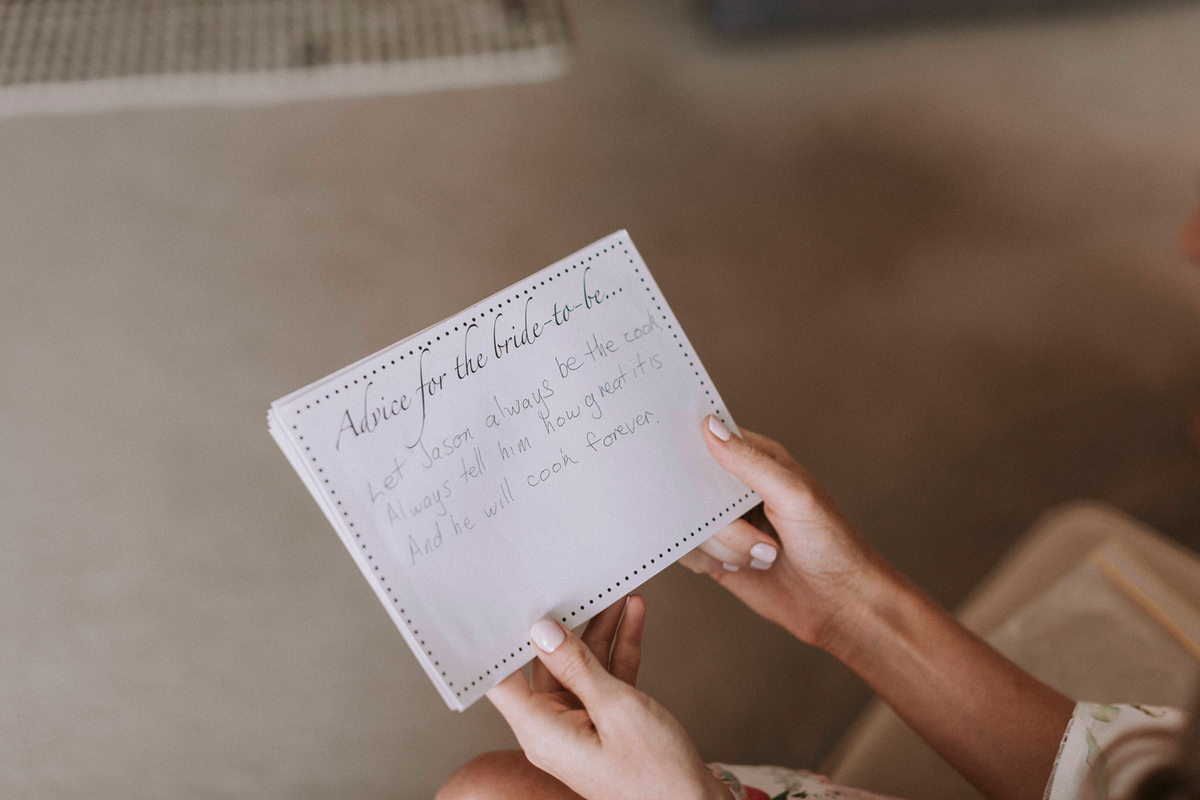 Advice for the bride-to-be...
Let Jason always be the cook
Always tell him how great it is
And he will cook forever.